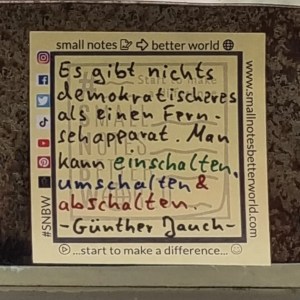 small notes better world
Es gibt nichts
demokratischeres
als einen Fern-
sehapparat. Man
kann einschalten,
umschalten &
abschalten.
- Günther Jauch -
...start to make a difference...
#SNBW
www.smallnotesbetterworld.com